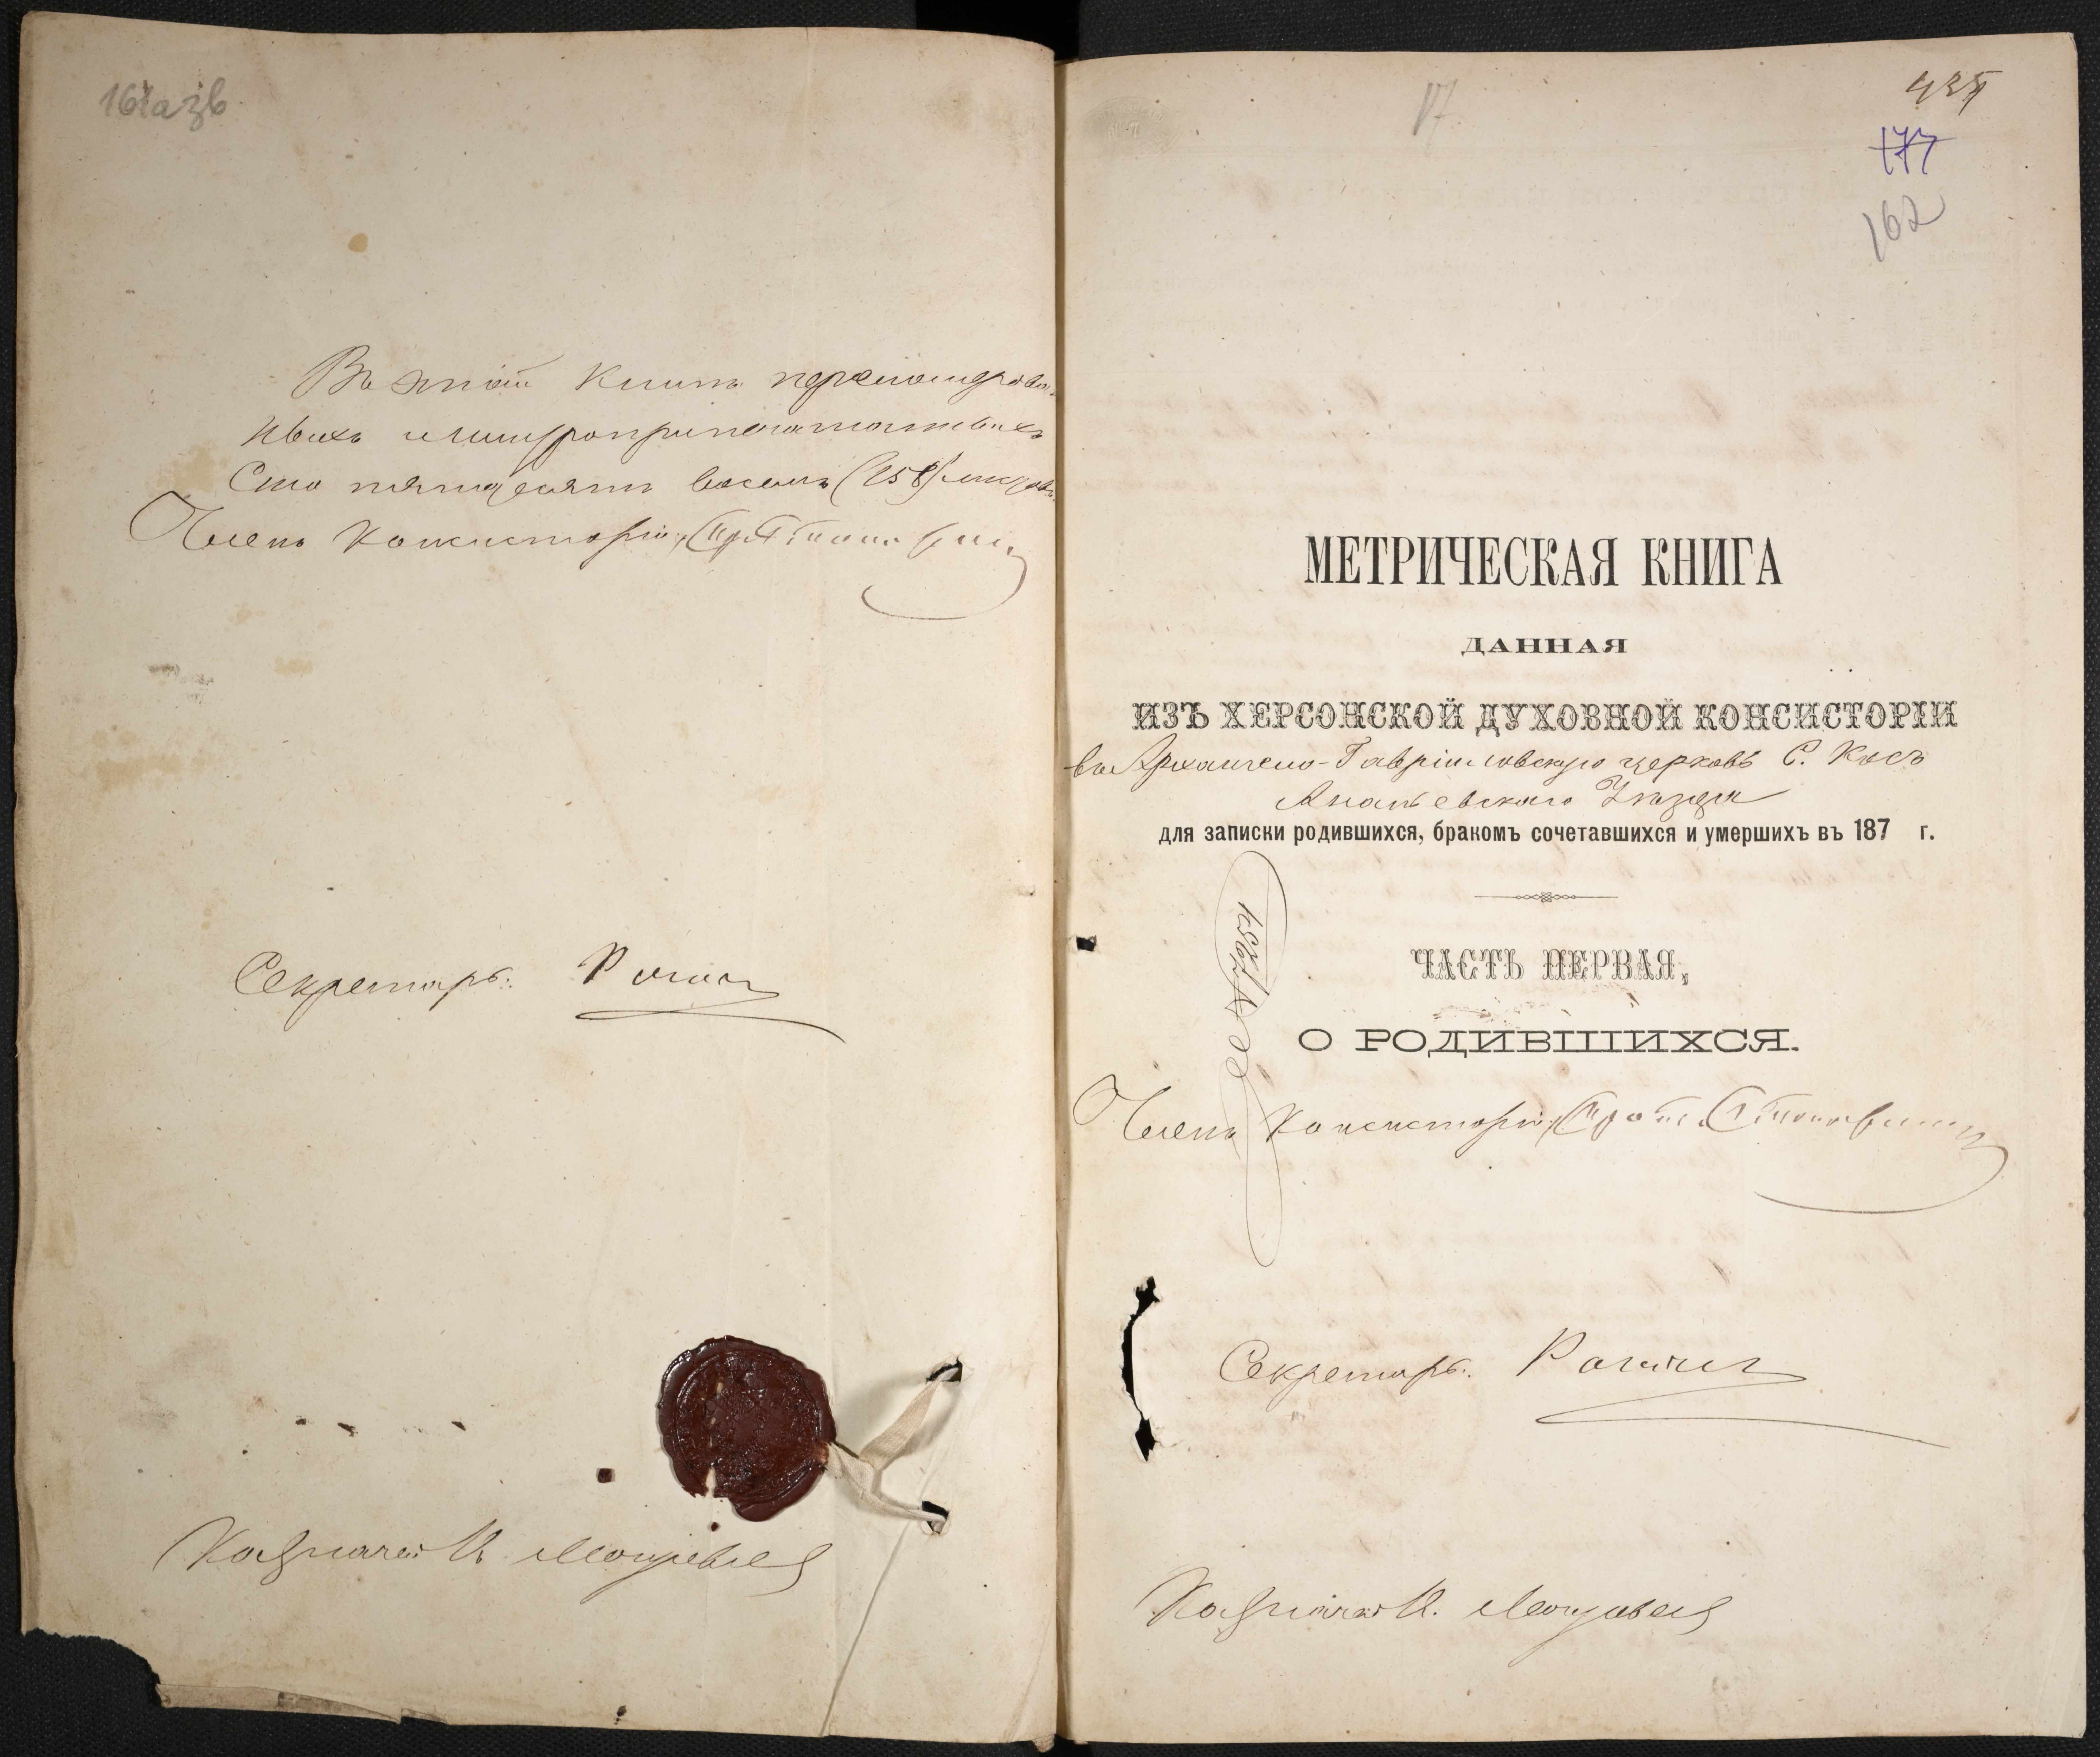 161а зв
Въ этой книгѣ перенумерован-
ныхъ и шнуроприпечатанныхъ
Сто пятьдесятъ восемь (158) листовъ
Членъ Консисторіи, Прот.
Секретарь
Казначей
17
435
177
162
МЕТРИЧЕСКАЯ КНИГА
ДАННАЯ
ИЗЪ ХЕРСОНСКОЙ ДУХОВНОЙ КОНСИСТОРІИ
въ Архангело-Гавріиловскую церковь С. Косъ
Ананьевскаго Уѣзда
для записки родившихся, бракомъ сочетавшихся и умершихъ въ 187 г.
ЧАСТЬ ПЕРВАЯ,
О РОДИВШИХСЯ.
Членъ Консисторіи, Прот.
Секретарь
Казначей